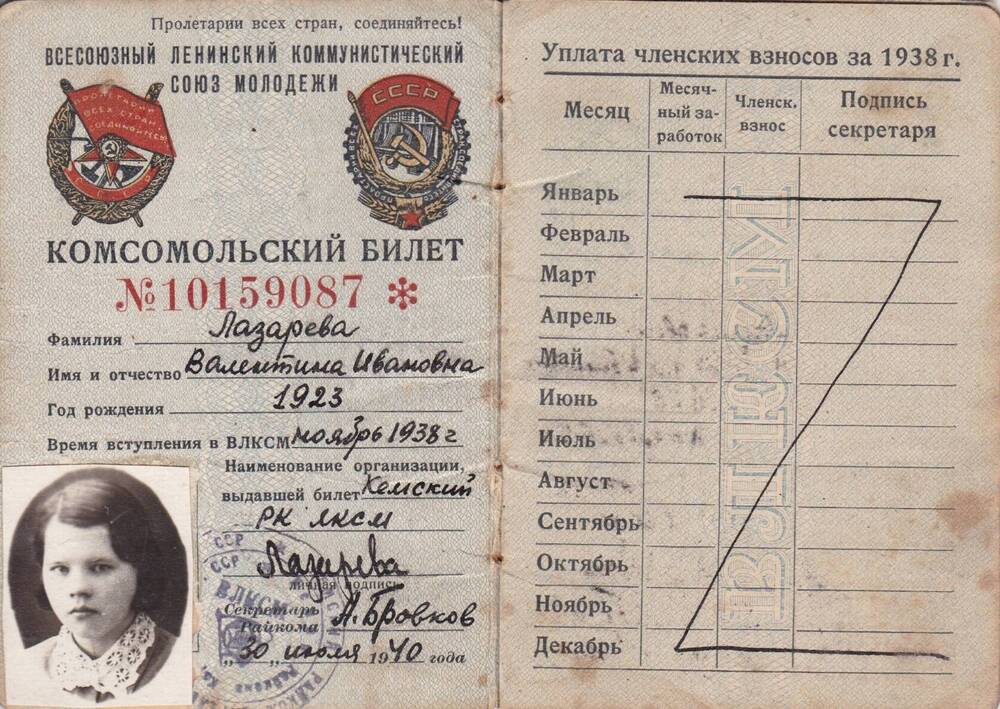 Пролетарии всех стран, соединяйтесь!
ВСЕСОЮЗНЫЙ ЛЕНИНСКИЙ КОММУНИСТИЧЕСКИЙ
СОЮЗ МОЛОДЕЖИ
ПРОЛЕТАРИИ
ВСЕХ СТРАН
СОЕДИНЯЙТЕСЬ
СССР
СССР
КОМСОМОЛЬСКИЙ БИЛЕТ
№10159087 *
Фамилия Лазарева
Имя и отчество Валентина Ивановна
Год рождения 1923
Время вступления в ВЛКСМ ноябрь 1938 г
Наименование организации,
выдавшей билет Кемский
РК ЛКСМ
Лазарева
личная подпись
Секретарь
Райкома А. Бровков
„30 июля 1940 года
ССР
ССР
ВЛКСМ
Уплата членских взносов за 1938 г.
Месяц
Месяч-
ный за-
работок
Членск.
взнос
Подпись
секретаря
Январь
Февраль
Март
Апрель
Май
Июнь
Июль
Август
Сентябрь
Октябрь
Ноябрь
Декабрь
ВЛКСМ